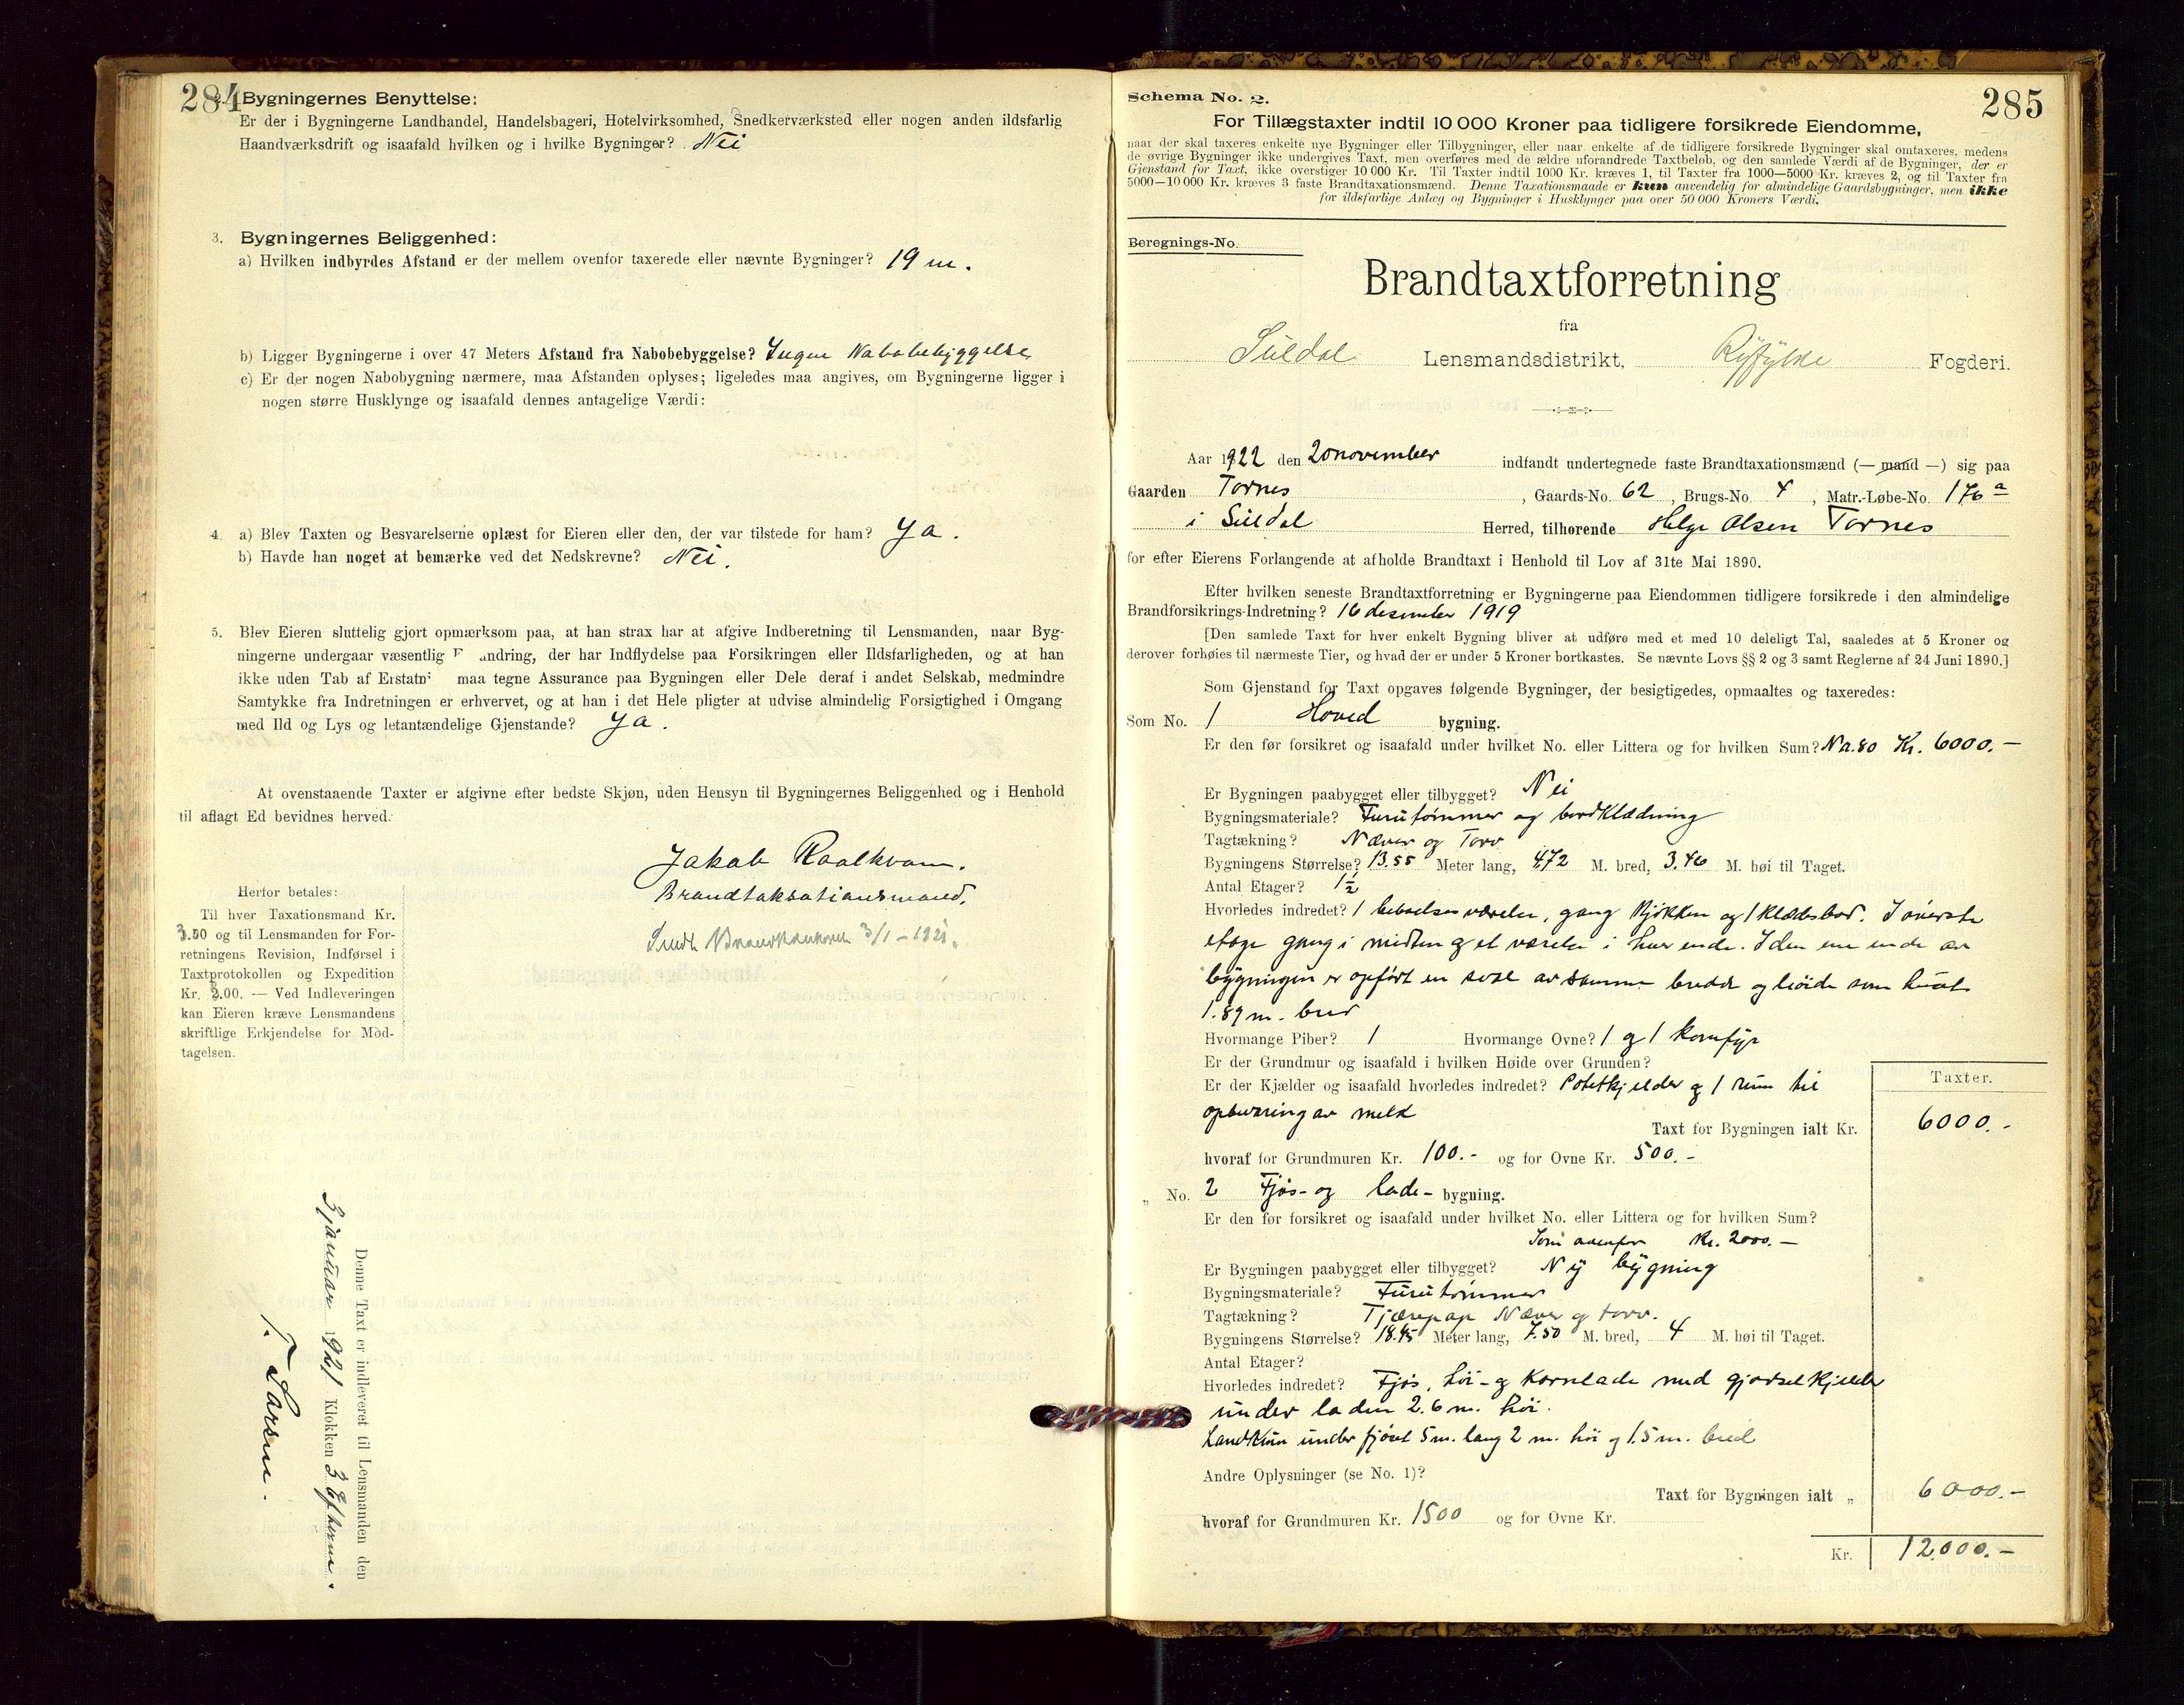 284
Bygningernes Benyttelse:
Er der i Bygningerne Landhandel, Handelsbageri, Hotelvirksomhed, Snedkerværksted eller nogen anden ildsfarlig
Haandværksdrift og isaafald hvilken og i hvilke Bygninger? Nei
3. Bygningernes Beliggenhed:
a) Hvilken indbyrdes Afstand er der mellem ovenfor taxerede eller nævnte Bygninger? 19 m.
b) Ligger Bygningerne i over 47 Meters Afstand fra Nabobebyggelse? Ingen Nabobebyggelse
c) Er der nogen Nabobygning nærmere, maa Afstanden oplyses; ligeledes maa angives, om Bygningerne ligger i
nogen større Husklynge og isaafald dennes antagelige Værdi:
4. a) Blev Taxten og Besvarelserne oplæst for Eieren eller den, der var tilstede for ham? Ja.
b) Havde han noget at bemærke ved det Nedskrevne? Nei.
5. Blev Eieren sluttelig gjort opmærksom paa, at han strax har at afgive Indberetning til Lensmanden, naar Byg-
ningerne undergaar væsentlig F andring, der har Indflydelse paa Forsikringen eller Ildsfarligheden, og at han
ikke uden Tab af Erstatn maa tegne Assurance paa Bygningen eller Dele deraf i andet Selskab, medmindre
Samtykke fra Indretningen er erhvervet, og at han i det Hele pligter at udvise almindelig Forsigtighed i Omgang
med Ild og Lys og letantændelige Gjenstande? Ja.
At ovenstaaende Taxter er afgivne efter bedste Skjøn, uden Hensyn til Bygningernes Beliggenhed og i Henhold
til aflagt Ed bevidnes herved.
Jakob Raalkvam.
Brandtaksationsmand.
3/1-1921.
Herfor betales:
Til hver Taxationsmand Kr.
3.50 og til Lensmanden for For-
retningens Revision, Indførsel i
Taxtprotokollen og Expedition
Kr. 3.00. — Ved Indleveringen
kan Eieren kræve Lensmandens
skriftlige Erkjendelse for Mod-
tagelsen.
Denne Taxt er indleveret til Lensmanden den
3 januar 1921 Klokken 3 Efterm.
T. Larsen.
Schema No. 2.
285
For Tillægstaxter indtil 10 000 Kroner paa tidligere forsikrede Eiendomme,
naar der skal taxeres enkelte nye Bygninger eller Tilbygninger, eller naar enkelte af de tidligere forsikrede Bygninger skal omtaxeres, medens
de øvrige Bygninger ikke undergives Taxt, men overføres med de ældre uforandrede Taxtbeløb, og den samlede Værdi af de Bygninger, der er
Gjenstand for Taxt, ikke overstiger 10 000 Kr. Til Taxter indtil 1000 Kr. kræves 1, til Taxter fra 1000—5000 Kr. kræves 2, og til Taxter fra
5000—10 000 Kr. kræves 3 faste Brandtaxationsmænd. Denne Taxationsmaade er kun anvendelig for almindelige Gaardsbygninger, men ikke
for ildsfarlige Anlæg og Bygninger i Husklynger paa over 50 000 Kroners Værdi.
Beregnings-No.
Brandtaxtforretning
fra
Suldal Lensmandsdistrikt, Ryfylke Fogderi.
Aar 1922 den 20 november indfandt undertegnede faste Brandtaxationsmænd (— mand —) sig paa
Gaarden Tornes, Gaards-No. 62, Brugs-No. 4, Matr.-Løbe-No. 176 a
i Suldal Herred, tilhørende Helge Olsen Tornes
for efter Eierens Forlangende at afholde Brandtaxt i Henhold til Lov af 31te Mai 1890.
Efter hvilken seneste Brandtaxtforretning er Bygningerne paa Eiendommen tidligere forsikrede i den almindelige
Brandforsikrings-Indretning? 16 desember 1919
[Den samlede Taxt for hver enkelt Bygning bliver at udføre med et med 10 deleligt Tal, saaledes at 5 Kroner og
derover forhøies til nærmeste Tier, og hvad der er under 5 Kroner bortkastes. Se nævnte Lovs §§ 2 og 3 samt Reglerne af 24 Juni 1890.]
Som Gjenstand for Taxt opgaves følgende Bygninger, der besigtigedes, opmaaltes og taxeredes:
Som No. 1 Hoved bygning.
Er den før forsikret og isaafald under hvilket No. eller Littera og for hvilken Sum? No.80 Kr. 6000.—
Er Bygningen paabygget eller tilbygget? Nei
Bygningsmateriale? Furutømmer og bordklædning
Tagtækning? Næver og Torv
Bygningens Størrelse? 13.55 Meter lang, 4.72 M. bred, 3.46 M. høi til Taget.
Antal Etager? 1½
Hvorledes indredet? 1 beboelsesværelse, gang Kjøkken og 1 klædesbod. I øverste
etage gang i midten og et værelse i hver ende. I den ene ende av
bygningen er opført en sval av samme bredde og høide som huset
1.89 m. bred
Hvormange Piber? 1 Hvormange Ovne? 1 og 1 komfyr
Er der Grundmur og isaafald i hvilken Høide over Grunden?
Er der Kjælder og isaafald hvorledes indredet? Potetkjelder og 1 rum til
opbevaring av melk
Taxter.
Taxt for Bygningen ialt Kr. 6000.-
hvoraf for Grundmuren Kr. 100.- og for Ovne Kr. 500.-
„ No. 2 Fjøs- og lade- bygning.
Er den før forsikret og isaafald under hvilket No. eller Littera og for hvilken Sum?
Som ovenfor Kr. 2000.—
Er Bygningen paabygget eller tilbygget? Ny bygning
Bygningsmateriale? Furutømmer
Tagtækning? Tjærepap Næver og torv.
Bygningens Størrelse? 18.45 Meter lang, 7.50 M. bred, 4 M. høi til Taget.
Antal Etager?
Hvorledes indredet? Fjøs, høi- og kornlade med gjødselkjelder
under laden 2.6 m. høi.
Landkum under fjøset 5 m. lang 2 m. høi og 1.5 m. bred
Andre Oplysninger (se No. 1)?
Taxt for Bygningen ialt „ 6000.—
hvoraf for Grundmuren Kr. 1500 og for Ovne Kr.
Kr. 12.000.—